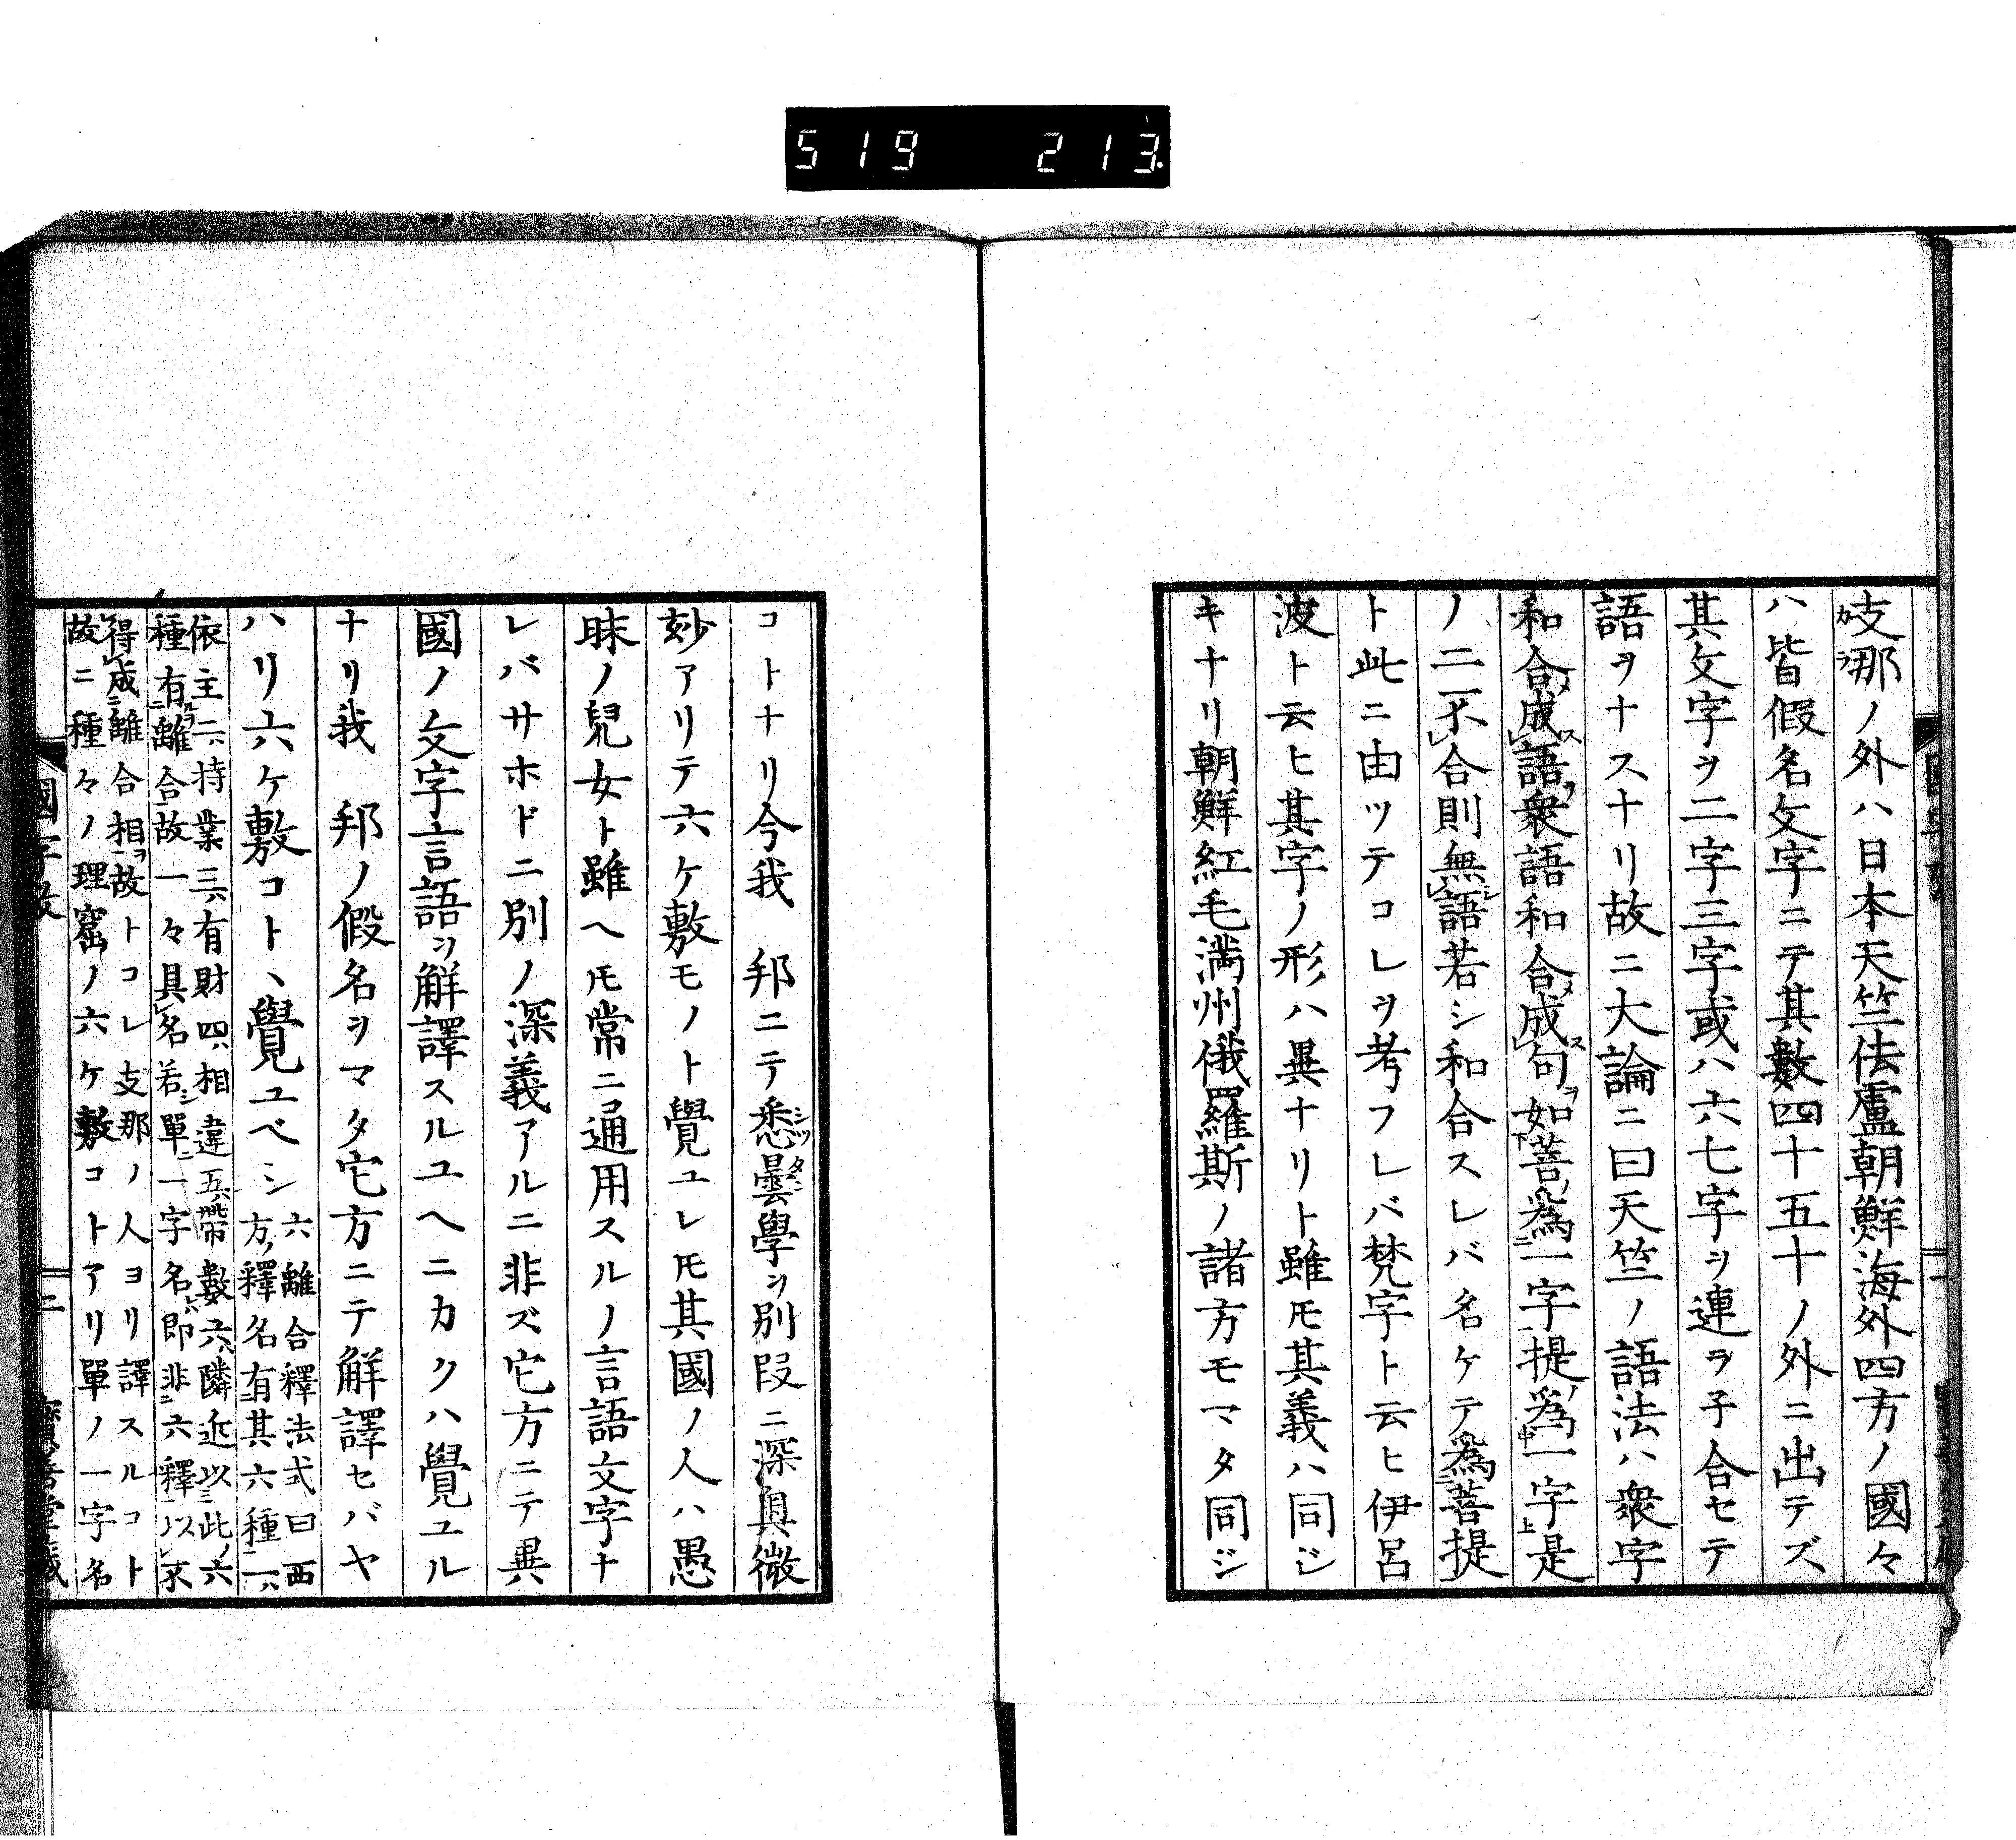 519 213
支那ノ外ハ日本天竺佉盧朝鮮海外四方ノ國々
ハ皆假名文字ニテ其數四十五十ノ外ニ出テズ
其文字ヲ二字三字或ハ六七字ヲ連ラ子合セテ
語ヲナスナリ故ニ大論ニ曰天竺ノ語法ハ衆字
和合メ成ス語ヲ衆語和合メ成ス句ヲ如菩爲一字提爲一字是
ノ二不合則無語若シ和合スレバ名ケテ爲菩提
ト此ニ由ツテコレヲ考フレバ梵字ト云ヒ伊呂
波ト云ヒ其字ノ形ハ異ナリト雖モ其義ハ同ジ
キナリ朝鮮紅毛満州俄羅斯ノ諸方モマタ同ジ
コトナリ今我 邦ニテ悉曇學ヲ別段ニ深奥微
玅アリテ六ケ敷モノト覺ユレ𪜈其國ノ人ハ愚
昧ノ兒女ト雖ヘ𪜈常ニ通用スルノ言語文字ナ
レバサホドニ別ノ深義アルニ非ズ它方ニテ異
國ノ文字言語ヲ解譯スルユヘニカクハ覺ユル
ナリ我 邦ノ假名ヲマタ它方ニテ解譯セバヤ
ハリ六ケ敷コトヽ覺ユベシ
六離合釋法式曰西
方ノ釋名有其六種一ハ
依主二ハ持業三ハ有財四ハ相違五ハ帶數六ハ隣近以此ノ六
種有離合故一々具名若シ單一字名即非六釋以不
得成離合相ヲ故トコレ支那ノ人ヨリ譯スルコト
故ニ種々ノ理窟ノ六ケ敷コトアリ單ノ一字名
國字攷